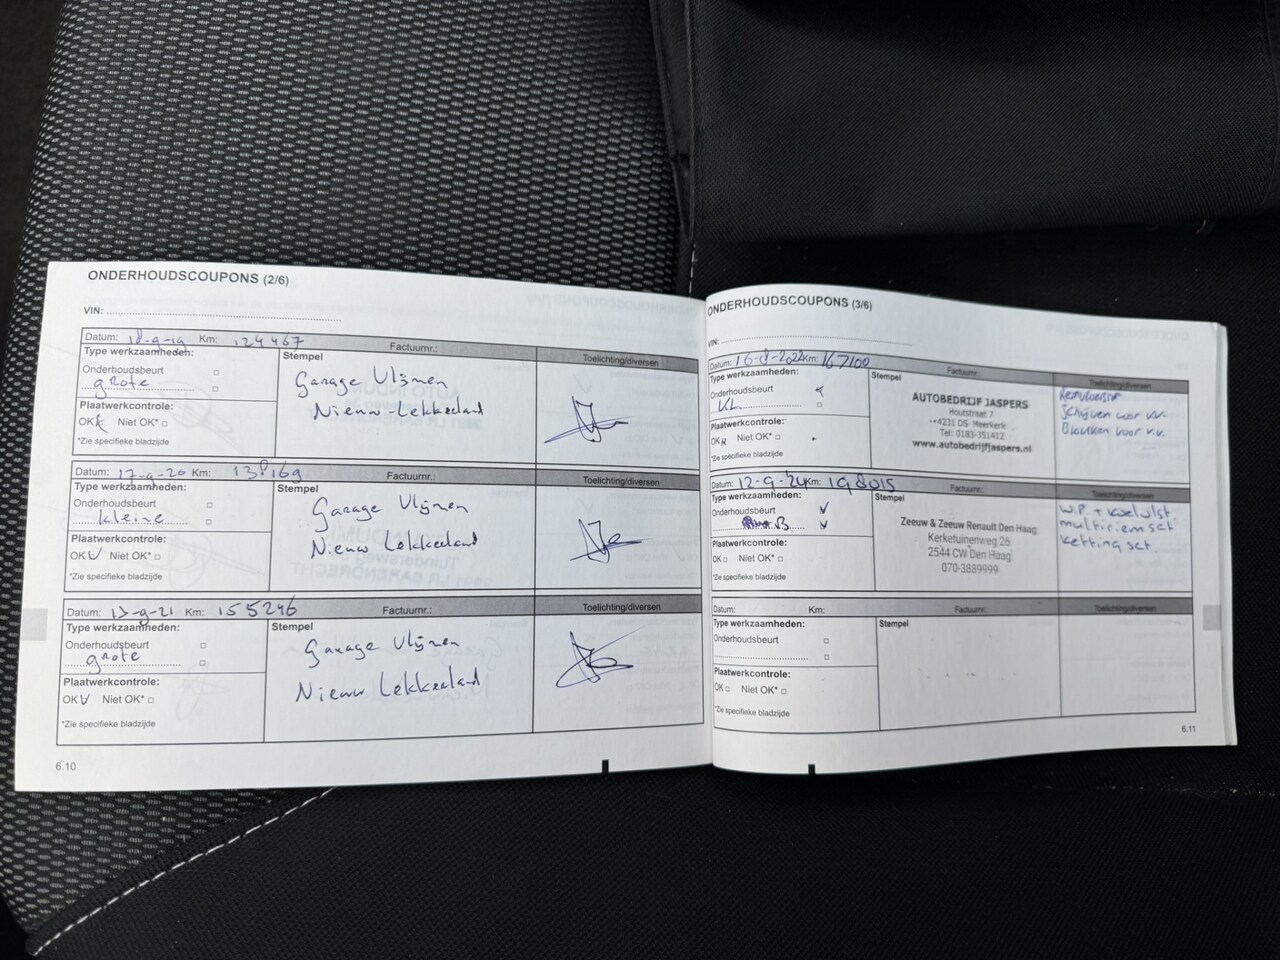 ONDERHOUDSCOUPONS (2/6)
VIN:
Datum: 18-9-19 Km: 124467 Factuurnr.:
Type werkzaamheden:
Onderhoudsbeurt
grote
Plaatwerkcontrole:
OK Niet OK*
*Zie specifieke bladzijde
Stempel
Garage Vlijmen
Nieuw-Lekkerland
Toelichting/diversen
Datum: 17-9-20 Km: Factuurnr.:
Type werkzaamheden:
Onderhoudsbeurt
kleine
Plaatwerkcontrole:
OK Niet OK*
*Zie specifieke bladzijde
Stempel
Garage Vlijmen
Nieuw Lekkerland
Toelichting/diversen
Datum: 13-9-21 Km: 155246 Factuurnr.:
Type werkzaamheden:
Onderhoudsbeurt
grote
Plaatwerkcontrole:
OK Niet OK*
*Zie specifieke bladzijde
Stempel
Garage Vlijmen
Nieuw Lekkerland
Toelichting/diversen
6.10
ONDERHOUDSCOUPONS (3/6)
VIN:
Datum: Km: 167100 Factuurnr.:
Type werkzaamheden:
Onderhoudsbeurt
KL
Plaatwerkcontrole:
OK Niet OK*
*Zie specifieke bladzijde
Stempel
AUTOBEDRIJF JASPERS
Houtstraat 7
4231 DS Meerkerk
Tel: 0183-351412
www.autobedrijfjaspers.nl
Toelichting/diversen
Remvloeistof
Schijven voor v.v.
Blokken voor v.v.
Datum: 12-9-24 Km: 198015 Factuurnr.:
Type werkzaamheden:
Onderhoudsbeurt
B
Plaatwerkcontrole:
OK Niet OK*
*Zie specifieke bladzijde
Stempel
Zeeuw & Zeeuw Renault Den Haag
Kerketuinenweg 26
2544 CW Den Haag
070-3889999
Toelichting/diversen
W.P + koelvlst
multiriemset
kettingset
Datum: Km: Factuurnr.:
Type werkzaamheden:
Onderhoudsbeurt
Plaatwerkcontrole:
OK Niet OK*
*Zie specifieke bladzijde
Stempel
Toelichting/diversen
6.11